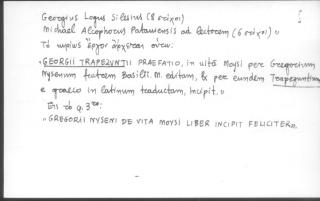 Georgius Logus Silesius (8 στίχοι)
Michael Alcophorus Patauensis ad lectorem (6 στίχοι) »
Τὸ κυρίως ἔργον ἄρχεται οὕτω:
«GEORGII TRAPEZUNTII PRAEFATIO, in uitā Moysi per Gregorium
Nysenum fratrem Basilii. M. editam, & per eundem Trapezuntium
e graeco in latinum traductam, Incipit.»
Εἰς τὸ φ. 3ʳᵒ:
«GREGORII NYSENI DE VITA MOYSI LIBER INCIPIT FELICITER».